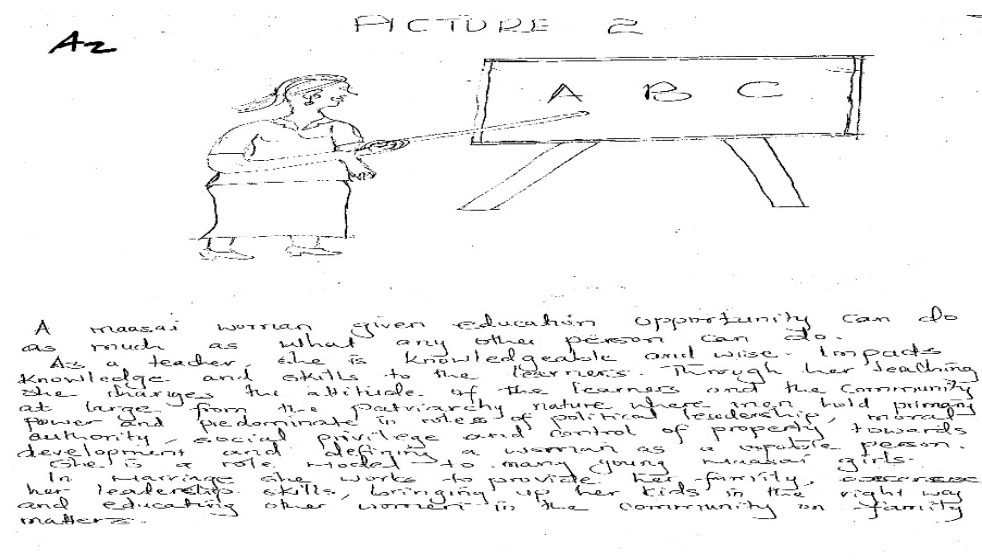 PICTURE 2
A2
A B C
A maasai woman given education opportunity can do
as much as what any other person can do.
As a teacher she is knowledgeable and wise. Impacts
knowledge and skills to the learners. Through her teaching
she changes the attitude of the learners and the community
at large from the patriarchy nature where men hold primary
power and predominate in roles of political leadership, moral
authority, social privilege and control of property, towards
development and defining a woman as a person.
She is a role model to many young Maasai girls.
In marriage she works to provide her family,
her leadership skills, bringing up her kids in the right way
and educating other women in the community on family
matters.